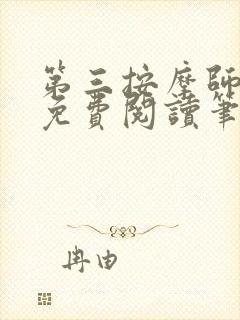 第三按摩师
免費閱讀筆
冉由